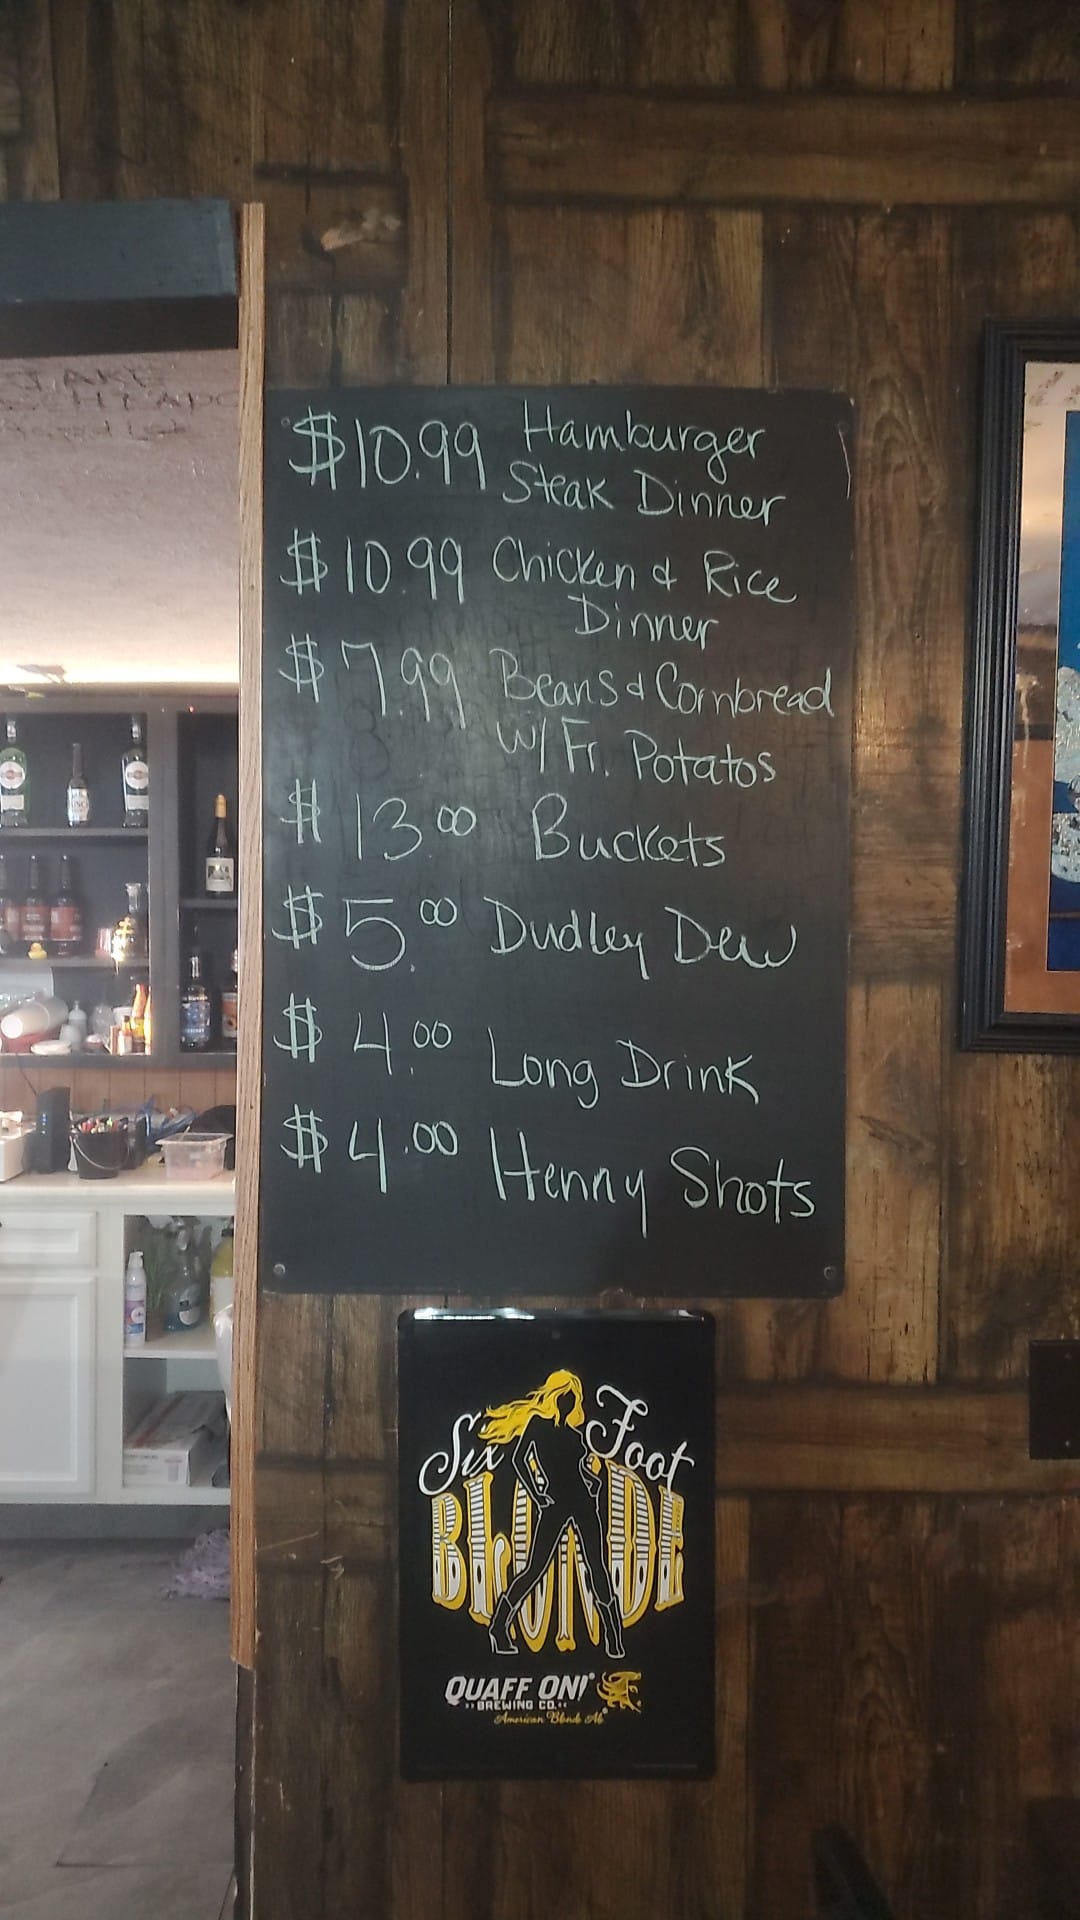 JAKE
$10.99 Hamburger
Steak Dinner
$10.99 Chicken & Rice
Dinner
$7.99 Beans & Cornbread
w/ Fr. Potatos
$13.00 Buckets
$5.00 Dudley Dew
$4.00 Long Drink
$4.00 Henny Shots
Six Foot
BLONDE
QUAFF ON!®
BREWING CO.
American Blonde Ale®